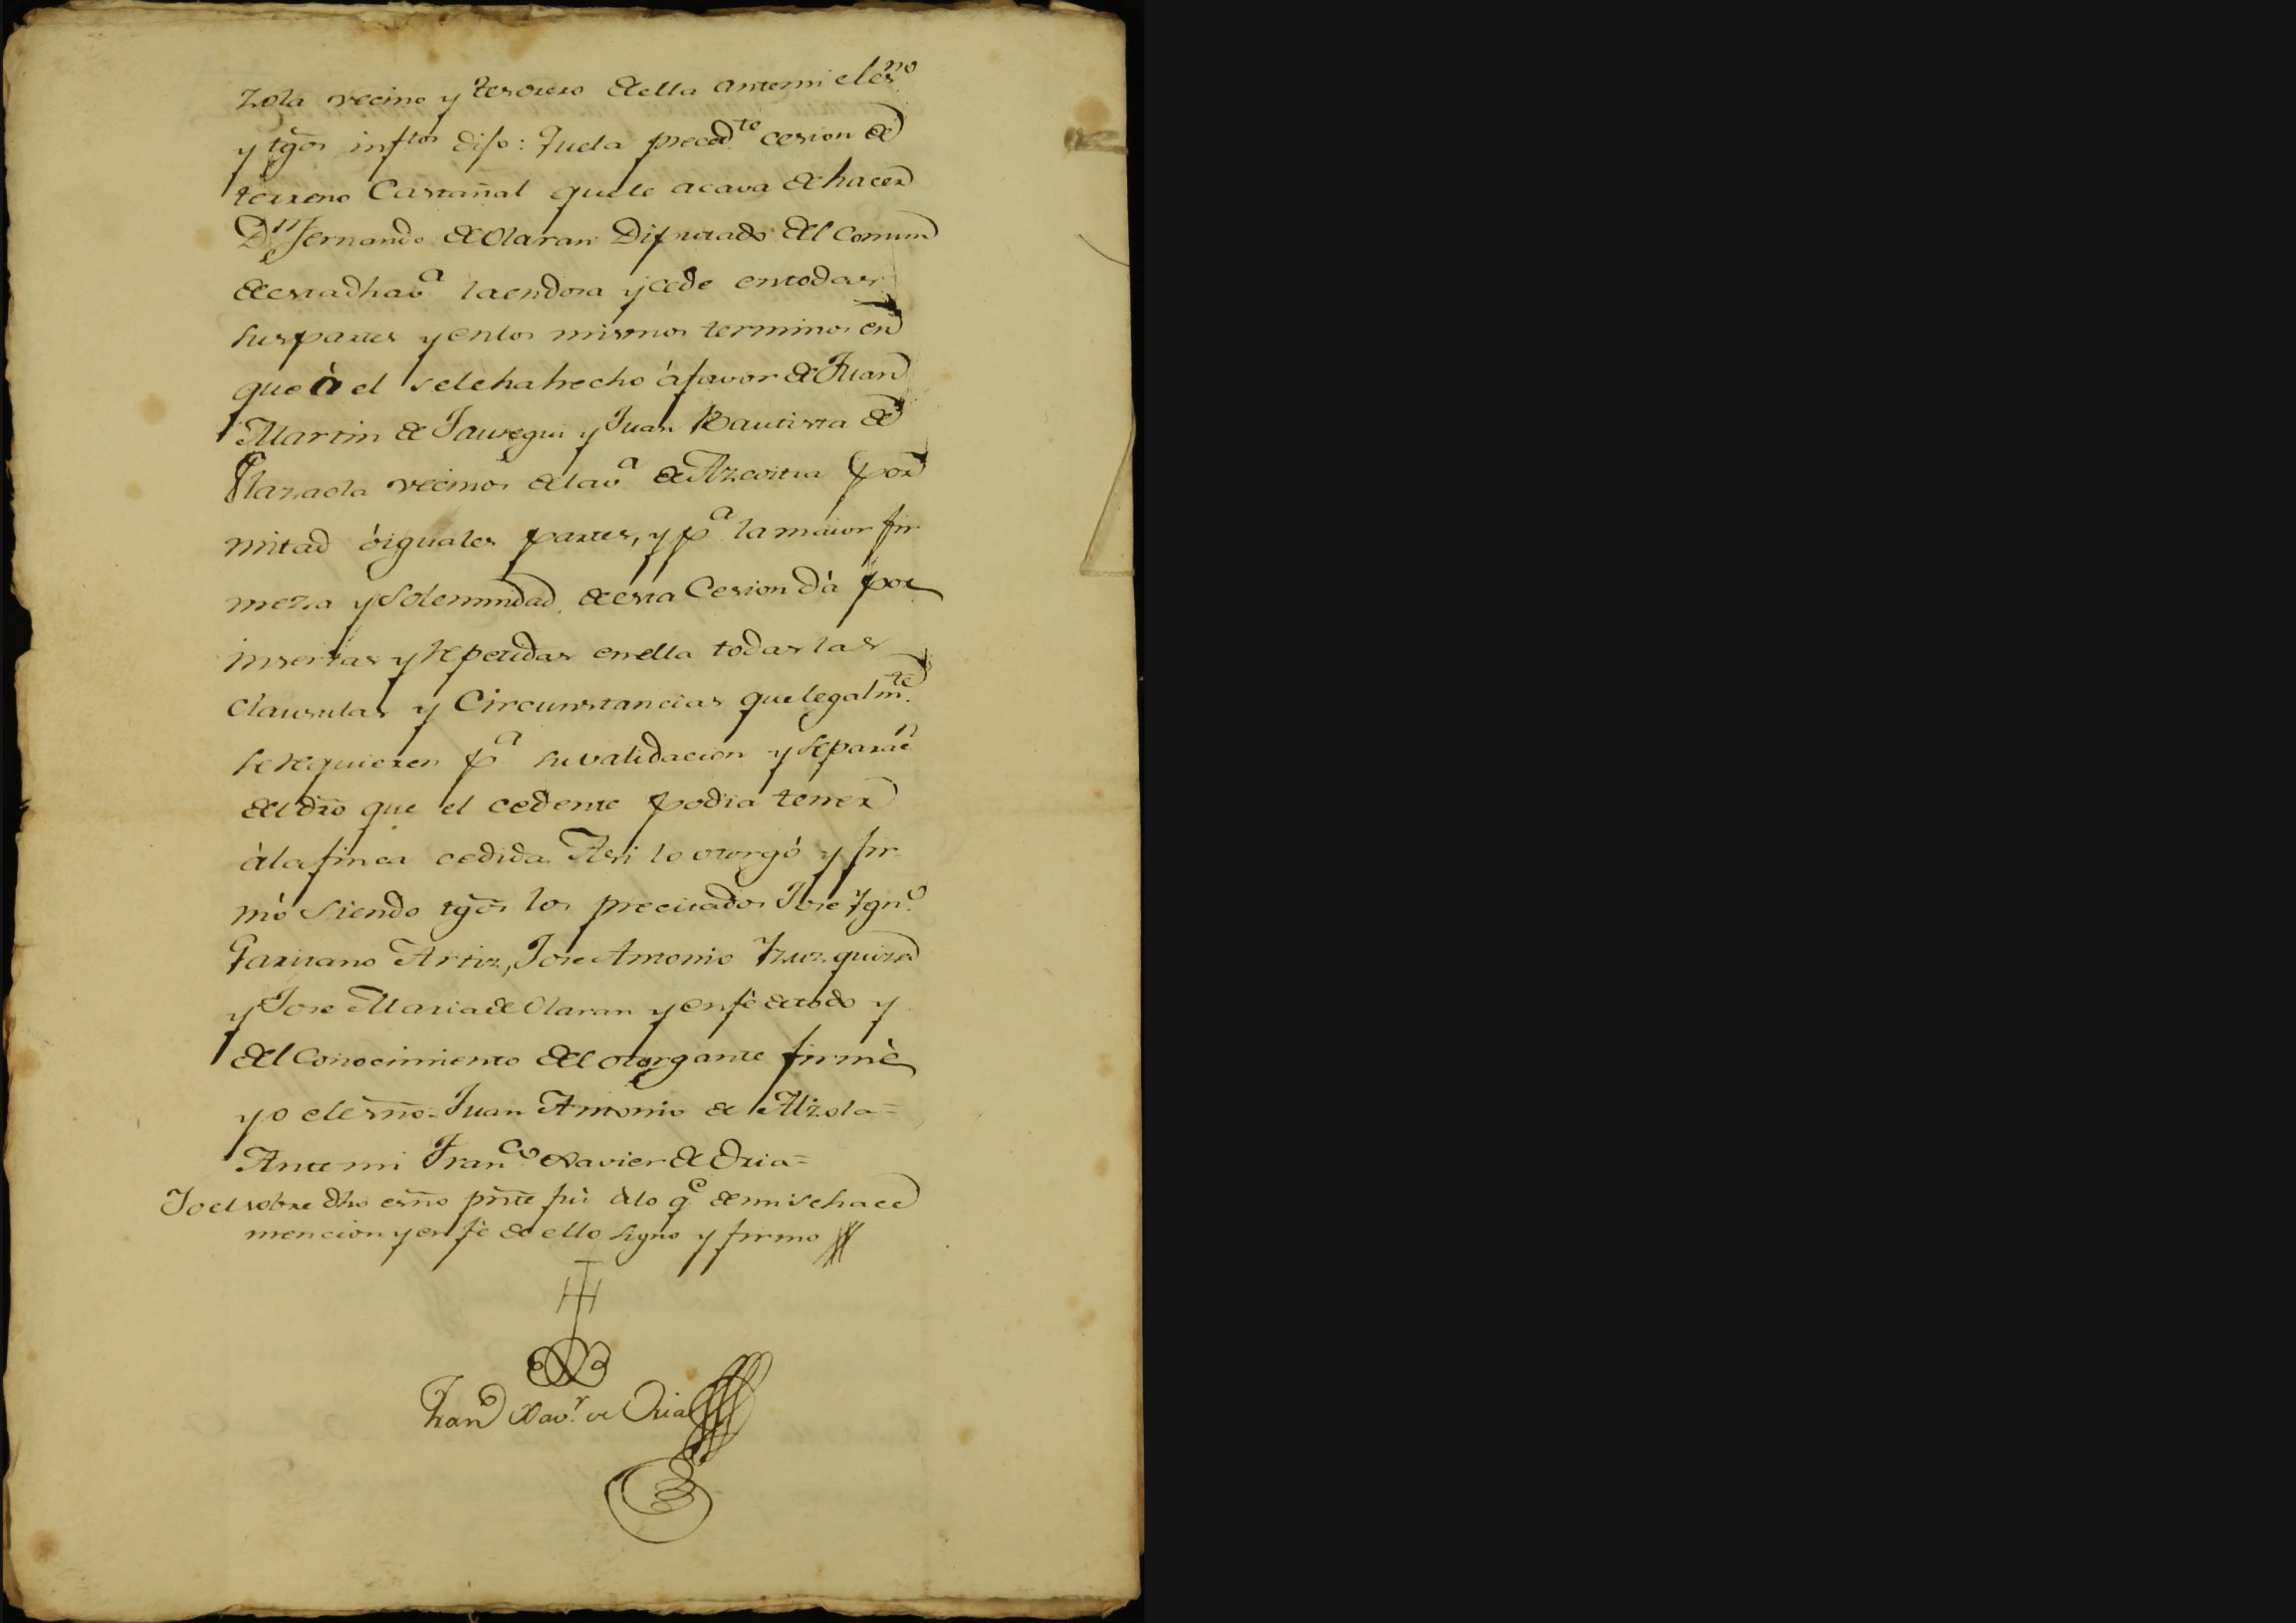 zola vecino y tesorero de ella antemi el es.no
y tg̃os inf.tos dijo: Que la preced.te cesion de
terreno Castañal que le acava de hacer
D.n Fernando de Olaran Diputado del Comun
de esta dha v.a la endosa y cede en todas
sus partes y en los mismos terminos en
que à el se le ha hecho à favor de Juan
Martin de Jauregui y Juan Bautista de
Plazaola vecinos de la v.a de Azcoitia por
mitad ó iguales partes, y p.a la maior fir
meza y Solemnidad de esta Cesion dà por
insertas y repetidas en ella todas las
Clausulas y Circunstancias que legalm.te
se requieren p.a su validacion y separac.n
del dr̃o que el cedente podia tener
à la finca cedida. Asi lo otorgó y fir
mó siendo tg̃os los precitados Jose Ygn.o
Garitano Artiz, Jose Antonio Yzuzquiza
y Jose Maria de Olaran y en fè de todo y
del Conocimiento del otorgante firmè
yo el esño = Juan Antonio de Alzola =
Ante mi Fran.co Xavier de Oria =
Yo el sobre dho esño pñte fui à lo q.e de mi se hace
mencion y en fè de ello signo y firmo
Fran.co Xav.r de Oria